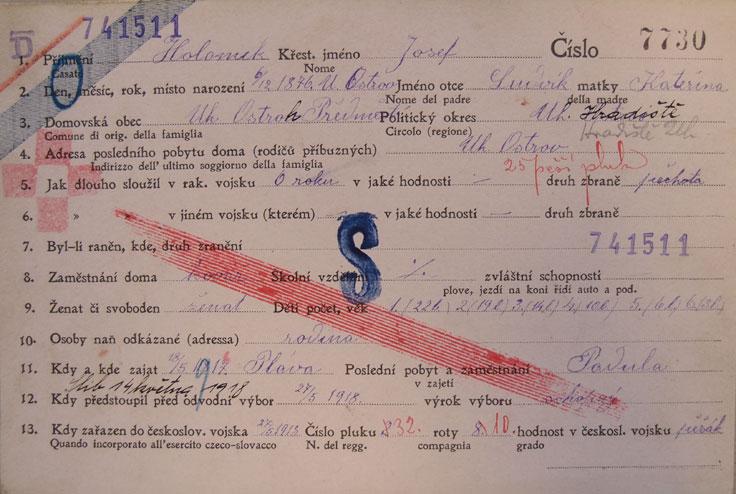 741511
1. Příjmení Holomek Křest. jméno Josef Číslo 7730
Casato Nome
2. Den, měsíc, rok, místo narození 6/12 1876 U. Ostrov Jméno otce Ludvik matky Kateřina
Nome del padre della madre
3. Domovská obec Uh. Ostroh Předm Politický okres Uh. Hradiště
Comune di orig. della famiglia Circolo (regione) Hradiště Uh
4. Adresa posledního pobytu doma (rodičů příbuzných) Uh. Ostrov
Indirizzo dell' ultimo soggiorno della famiglia 25 pěší pluk
5. Jak dlouho sloužil v rak. vojsku 0 roku v jaké hodnosti – druh zbraně pěchota
6. » v jiném vojsku (kterém) – v jaké hodnosti – druh zbraně
7. Byl-li raněn, kde, druh zranění 741511
8. Zaměstnání doma Školní vzdělání ./. zvláštní schopnosti
plove, jezdí na koni řídí auto a pod.
S
9. Ženat či svoboden ženat Dětí počet, věk 1. (22 l.) 2 (19 l.) 3. (14 l.) 4. (10 l.) 5. (6 l.)
10. Osoby naň odkázané (adressa) rodina
11. Kdy a kde zajat 1917 Pláva Poslední pobyt a zaměstnání Padula
v zajetí
Slib 14 května 1918
12. Kdy předstoupil před odvodní výbor 27/5 1918 výrok výboru
13. Kdy zařazen do českoslov. vojska Číslo pluku 32. roty 10. hodnost v českosl. vojsku
Quando incorporato all'esercito czeco-slovacco N. del regg. compagnia grado